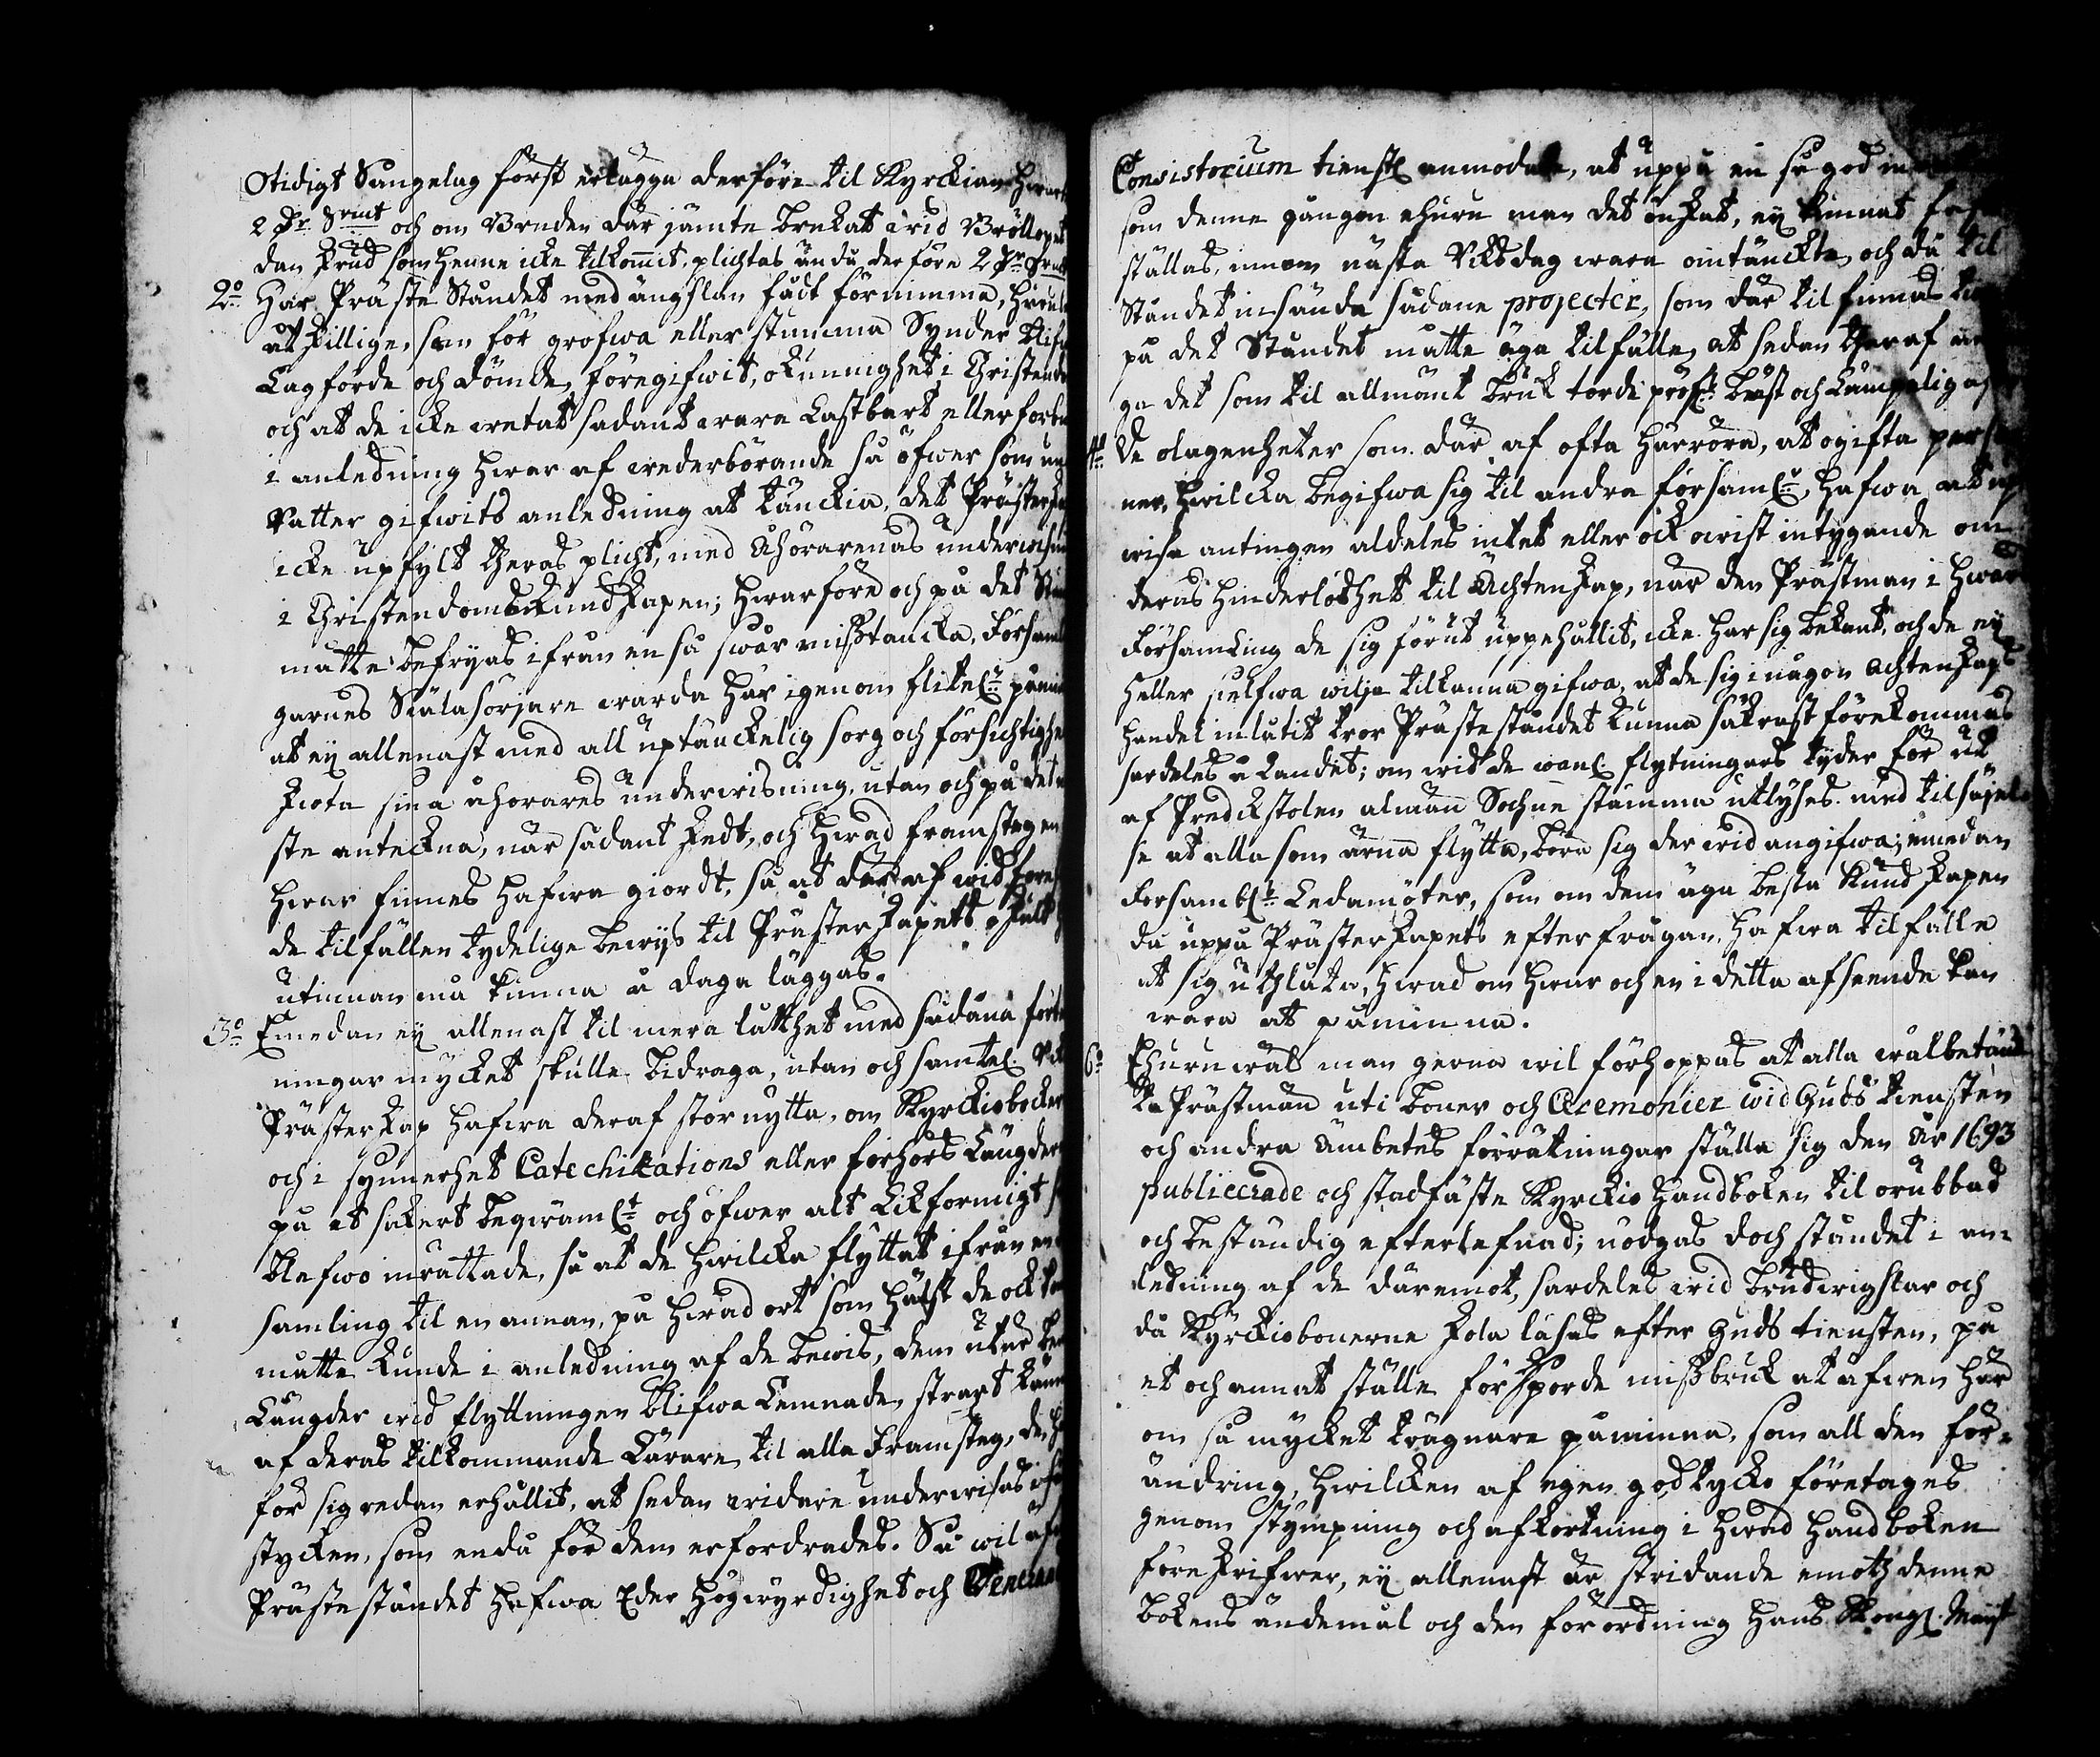 Otidigt Sängelag först erlägga derföre til Kyrckian hwart
2 Dr Srmt och om Bruden där jämte brukat wid Bröllopet
dan skrud som henne icke tilkommit, plichtas ändå der före 2 Dr Srmt
2o Har Präste Ståndet med ängslan fådt förnimma, huru
åtskillige, som för grofwa eller stumma Synder blifw
Lagförde och dömde, föregifwit, okunnighet i Christendo
och at de icke wetat sådant wara Lastbart eller forbu
i anledning hwar af wederbörande så öfwer som un
Rätter gifwits anledning at tänckia, det Prästerska
icke upfylt theras plicht, med åhörarenas underwisni
i Christendoms kundskapen; hwarföre och på det Stån
måtte befryas ifrån en så swår misstancka, Församl
garnes Siälasörjare warda här igenom flitel: påmin
at ey allenast med all uptänckelig sorg och försichtighe
sköta sina åhörares underwisning, utan och på det
ste anteckna, när sådant skedt, och hwad framsteg en
hwar finnes hafwa giordt, så at där af wid föres
de tilfällen tydelige bewijs til Prästerskapets oskuld
utinnan må kunna å daga läggas.
3o Emedan ey allenast til mera lätthet med sådana förte
ningar mycket skulle bidraga, utan och samtel. Rik
Prästerskap hafwa deraf stor nytta, om Kyrckioböcker
och i synnerhet Catechisations eller förhörs Längder
på et säkert beqwäml:t och öfwer alt Likformigt s
blefwo inrättade, så at de hwilcka flyttat ifrån en
samling til en annan, på hwad ort som hälst de ock
måtte kunde i anledning af de bewis, dem utur be
Längder wid flyttningen blifwa Lemnade, strax kän
af deras tilkommande Lärare til alla Framsteg, de h
för sig redan erhållit, at sedan widare underwisas
stycken, som ändå för dem erfordrades. Så wil
Prästeståndet hafwa Eder Högwyrdighet och Veneran
Consistorium tienstl anmodade, at uppå en så god
som denne gången ehuru man det önskat, ey kunnat
ställas, innom nästa Riksdag wara omtänckte och då til
Ståndet insända sådane projecter, som där til finnas
på det Ståndet måtte äga tilfälle, at sedan theraf
ga det som til allmänt bruk torde pröf:s bäst och Lämpeligast
4o De olägenheter som där af ofta härröra, at ogifta perso
ner, hwilcka begifwa sig til andra församl:r, hafwa at up
wisa antingen aldeles intet eller ock owist intygande om
deras hinderlöshet til Äcktenskap, när den Prästman i hwars
Församling de sig förut uppehållit, icke har sig bekant, och de ey
heller sielfwa wilja tilkänna gifwa, at de sig i någon Achtenskaps
handel inlåtit tror Prästeståndet kunna säkrast förekommas
särdeles å Landet; om wid de wanl: flytningars tyder för ut
af Predikstolen almän Sochne stämma utlyses med tilsäjel
se at alla som ärna flytta, böra sig der wid angifwa; emedan
försambl:s Ledamöter, som om dem äga bästa kundskapen
då uppå Prästerskapets efterfrågan, hafwa tilfälle
at sig uthlåta, hwad om hwar och en i detta afseende kan
wara at påminna.
6o Ehuruwäl man gerna wil förhoppas at alla wälbetänck
ta Prästmän uti böner och Ceremonier wid Guds tiensten
och andra Ämbetes förrätningar ställa sig den år 1693
publicerade och stadfäste Kyrckio handboken til orubbad
och beständig efterlefnad; nödgas doch ståndet i an=
ledning af de däremot, särdeles wid brudwigslar och
då Kyrckiobönerne skola läsas efter Guds tiensten, på
et och annat ställe försporde missbruk at äfwen här
om så mycket trägnare påminna, som all den för=
ändring, hwilcken af egen godtycko företages
genom stympning och afkortning i hwad handboken
föreskrifwer, ey allenast är stridande emoth denne
bokens ändemål och den förordning Hans Kongl. Maij:t